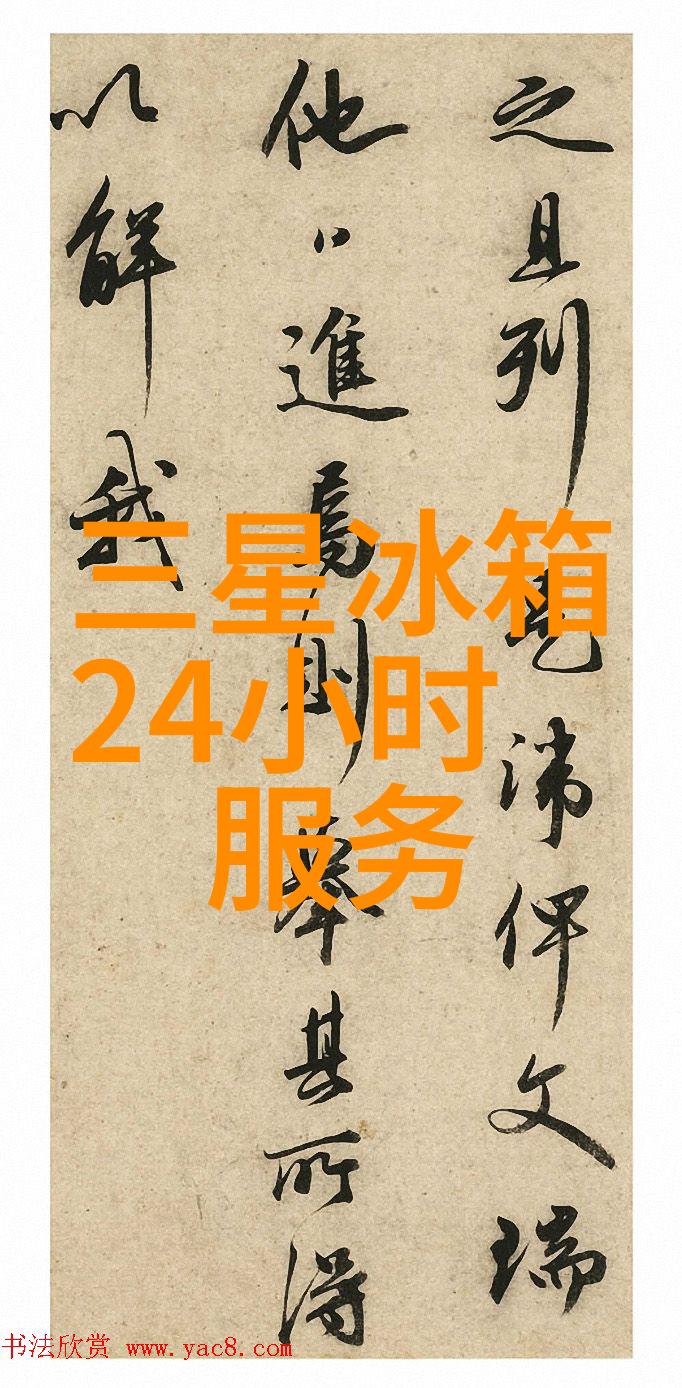 之且列
諱俾文瑞
他日進焉則舉其所得
以解我
三星冰箱
24小时
服务
书法欣赏 www.yac8.com